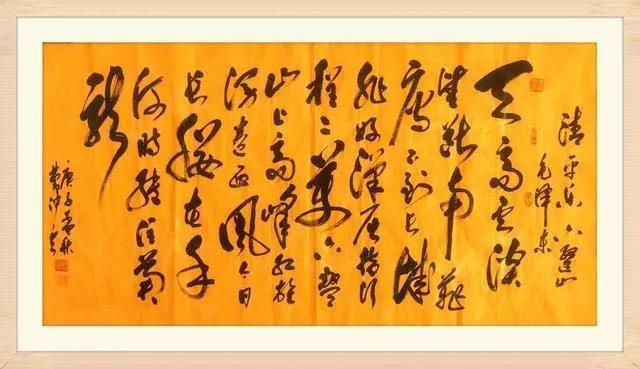 清平乐六盤山
毛泽东
天高云淡
望断南飛
雁不到长城
非好漢屈指行
程二万六盤
山上高峰红旗
漫卷西風今日
长缨在手
何时缚住苍
龙
庚子秋